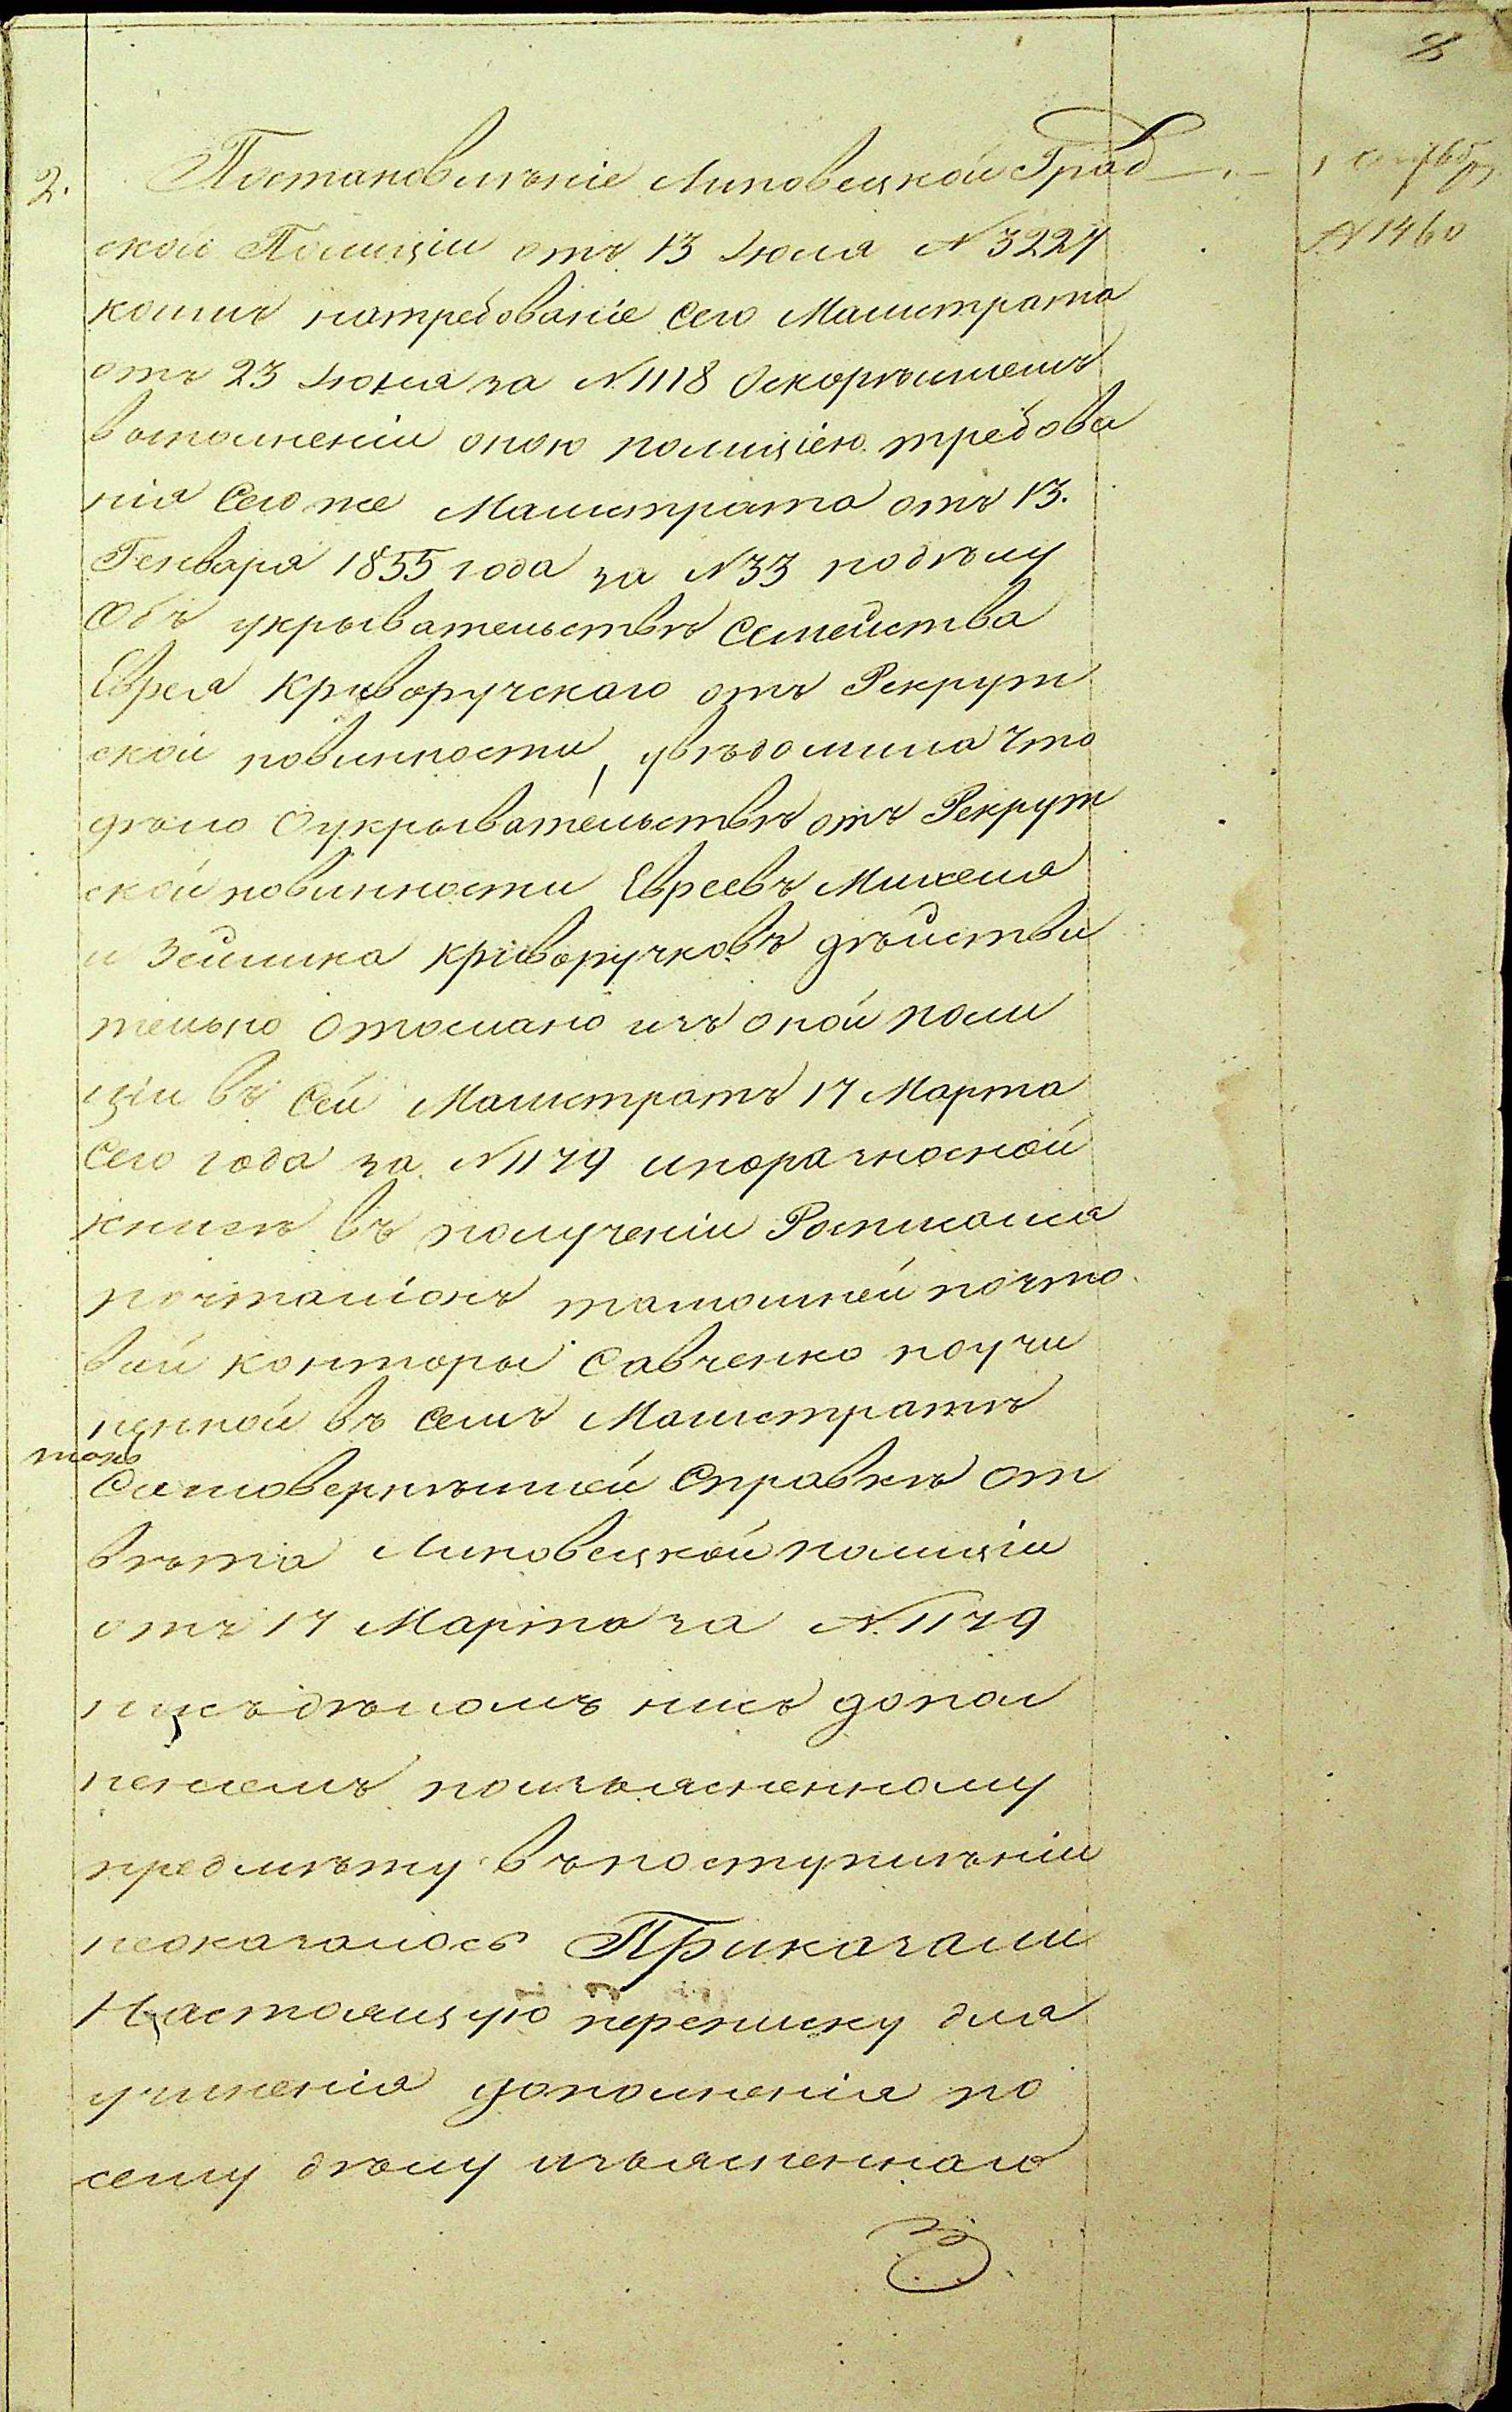 2. Постановленіе Липовецкой Град
1 сентябр
ской Полиціи отъ 13 Іюля N 3227
N 1460
коимъ натребованіе Сего Магистрата
отъ 23 Іюня за N 1118 Оскорѣишемъ
выполненіи оною полиціею требова
нія Сегоже Магистрата отъ 13.
Генваря 1855 года за N 33 подѣлу
Объ укрывательствѣ Семейства
Еврея Криворучскаго отъ Рекрут
ской повинности, увѣдомила что
дѣло Оукрывательствѣ отъ Рекрут
ской повинности Евреевъ Михеля
и Зейлика Криворучковъ дѣйстви
тельно Отослано изъ оной поли
ціи въ Сей Магистратъ 17 Марта
Сего года за N 1179 ипоразносной
книгѣ въ полученіи Росписался
почталіонъ тамошней почто
вой конторы Савченко поучи
ненной въ семъ Магистратѣ
токъ
Самовернѣишей Справкѣ От
вѣта Липовецкой полиціи
отъ 17 Марта за N. 1179
нисъдѣломъ нисъ допол
неніемъ поизъясненному
предмѣту въпоступленіи
неоказалось Приказали
Настоящую переписку для
учиненія дополненія по
сему дѣлу изъясненнаго